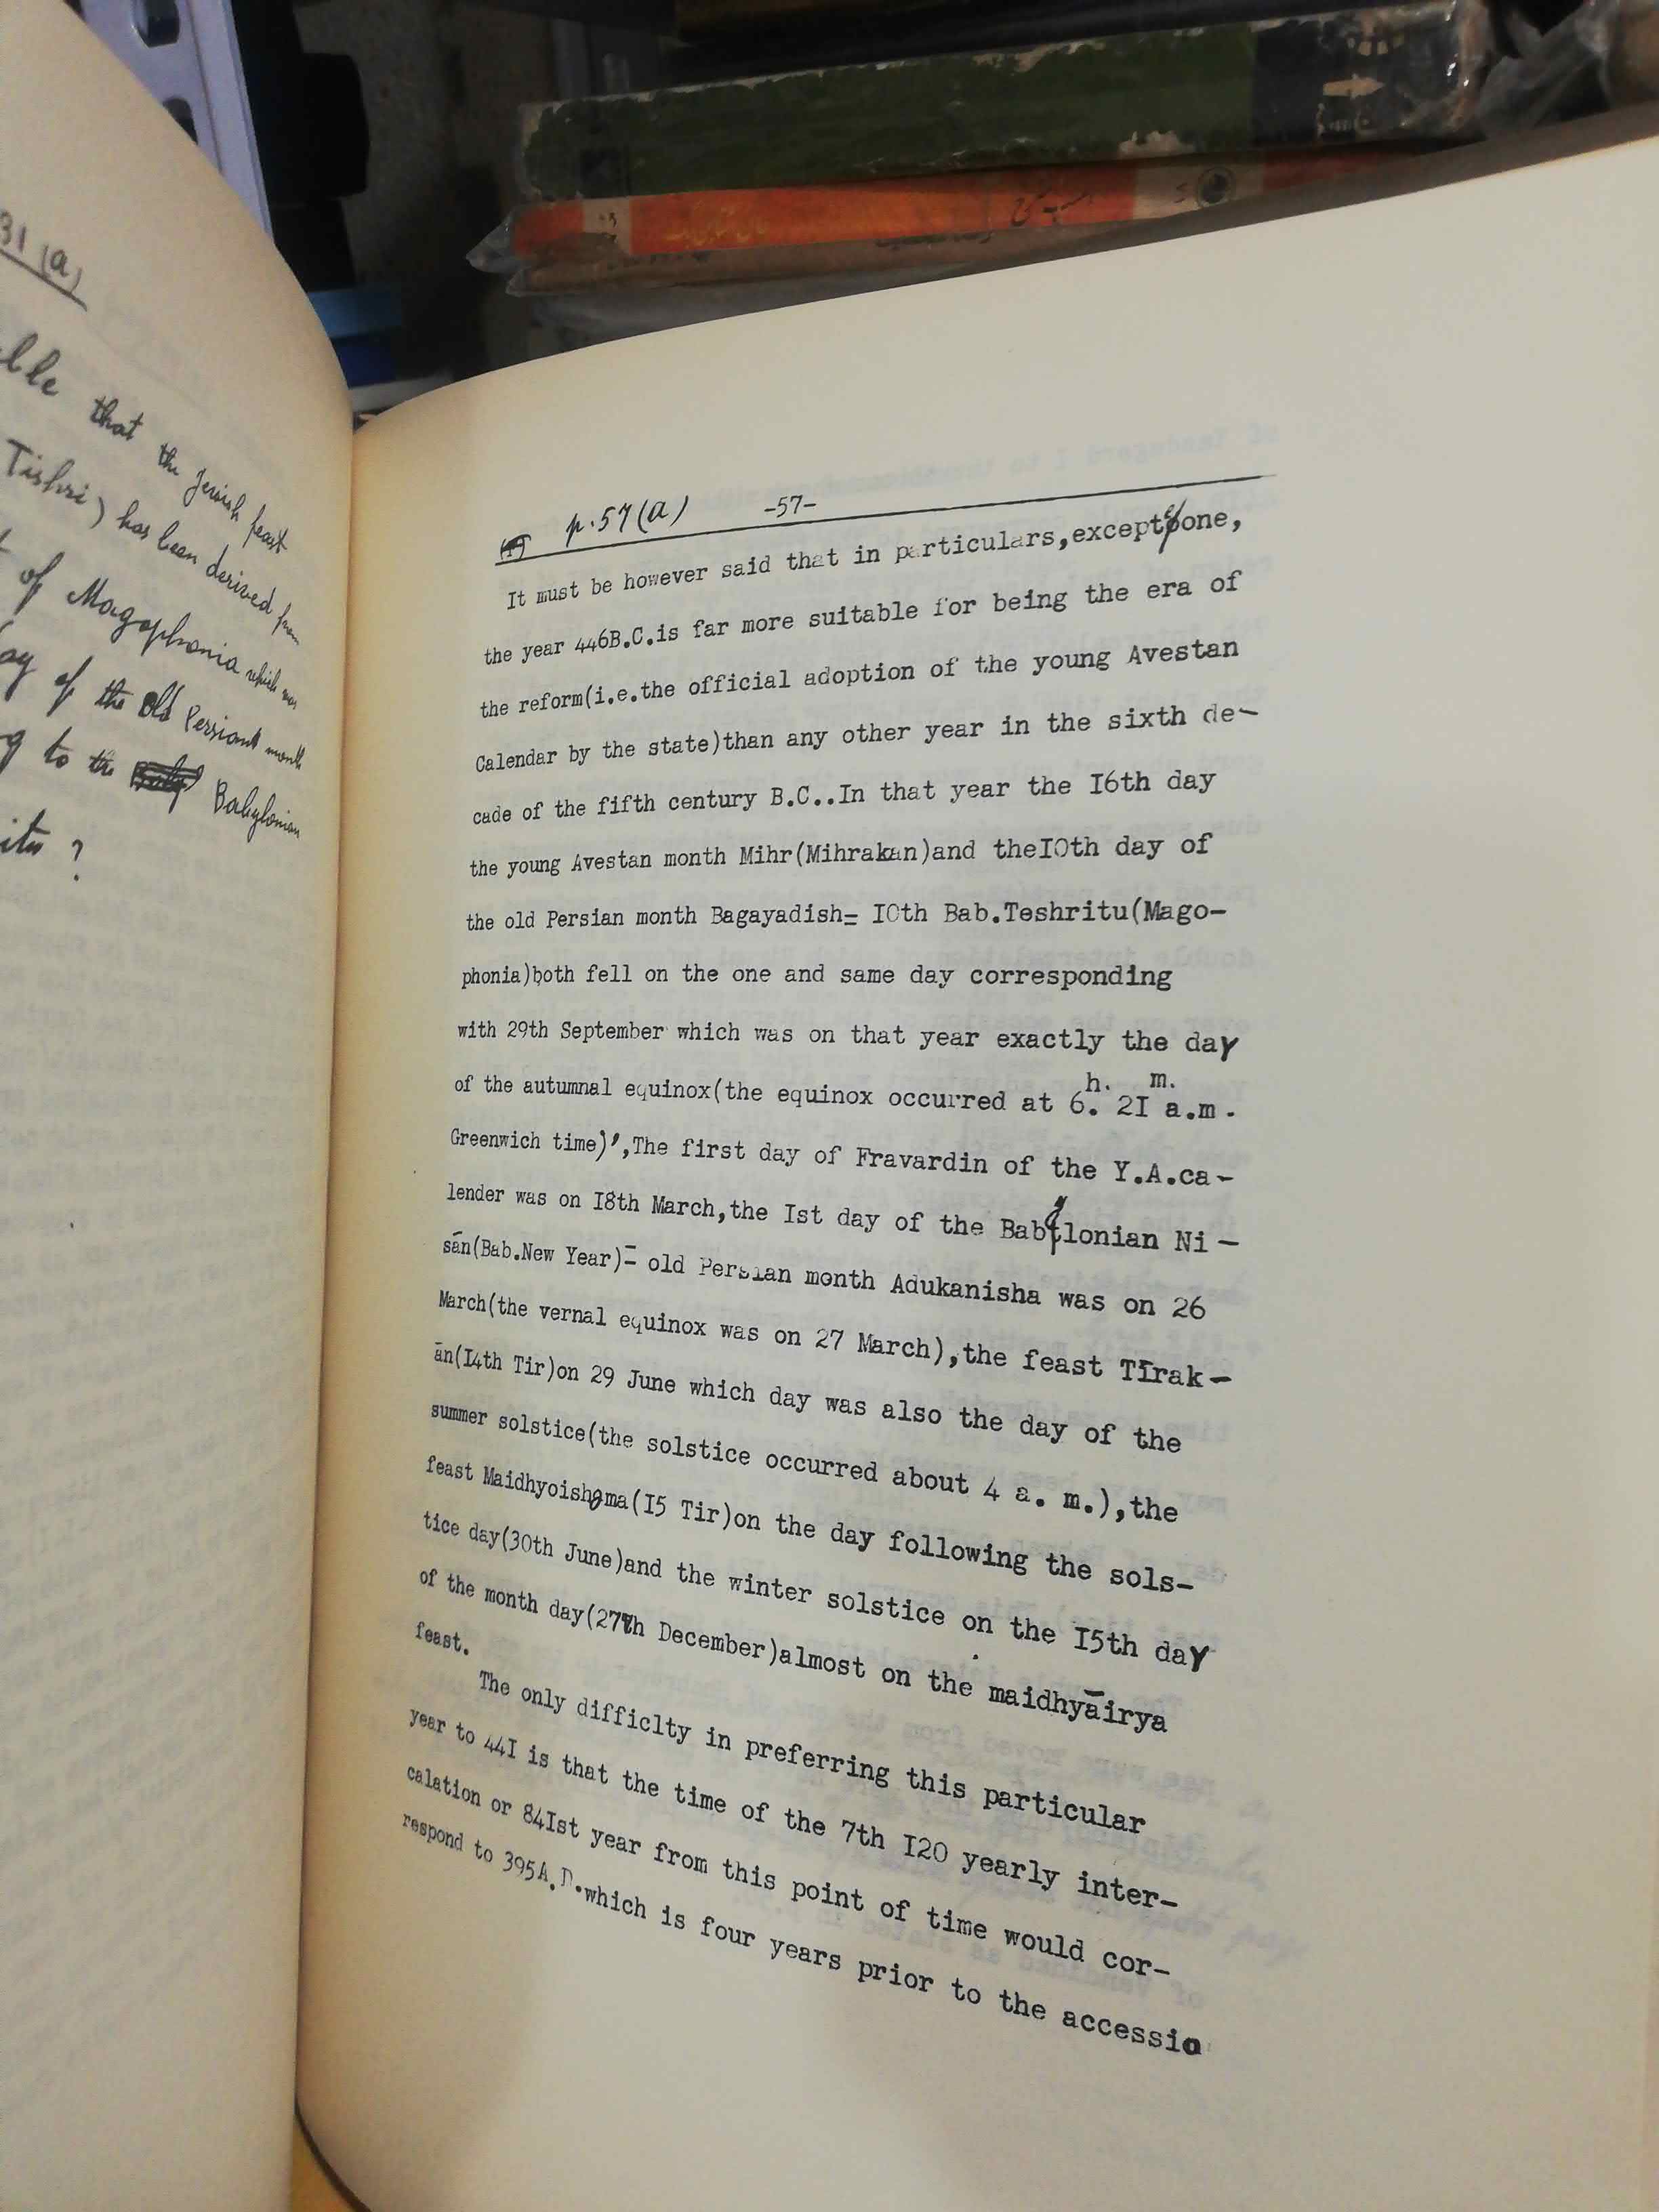 31 (a)
that the Jewish feast
Tishri) has been derived from
of Magophonia which was
of the old Persian month
to the Babylonian
?
p.57(a) -57-
It must be however said that in particulars,except one,
the year 446B.C.is far more suitable for being the era of
the reform(i.e.the official adoption of the young Avestan
Calendar by the state)than any other year in the sixth de-
cade of the fifth century B.C..In that year the I6th day
the young Avestan month Mihr(Mihrakan)and theI0th day of
the old Persian month Bagayadish= I0th Bab.Teshritu(Mago-
phonia)both fell on the one and same day corresponding
with 29th September which was on that year exactly the day
of the autumnal equinox(the equinox occurred at 6h. 2Im. a.m.
Greenwich time)',The first day of Fravardin of the Y.A.ca-
lender was on I8th March,the Ist day of the Babylonian Ni-
sān(Bab.New Year)= old Persian month Adukanisha was on 26
March(the vernal equinox was on 27 March),the feast Tīrak-
ān(I4th Tir)on 29 June which day was also the day of the
summer solstice(the solstice occurred about 4 a. m.),the
feast Maidhyoishema(I5 Tir)on the day following the sols-
tice day(30th June)and the winter solstice on the I5th day
of the month day(27th December)almost on the maidhyāirya
feast.
The only difficlty in preferring this particular
year to 44I is that the time of the 7th I20 yearly inter-
calation or 84Ist year from this point of time would cor-
respond to 395A.D.which is four years prior to the accessio